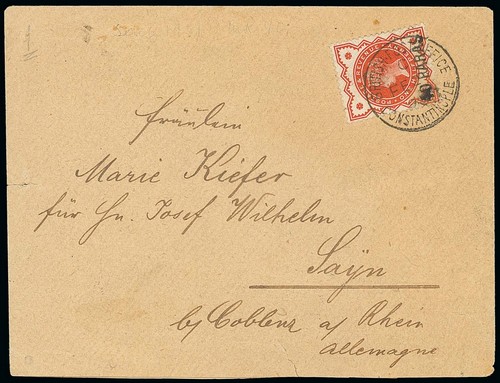 Fräulein
Marie Kiefer
für Hn. Josef Wilhelm
Sayn
b/ Coblenz a/ Rhein
Allemagne
OFFICE
CONSTANTINOPLE
POSTAGE